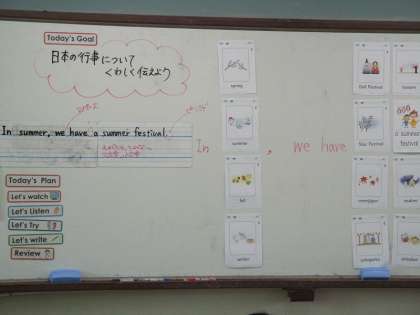 Today's Goal
日本の行事について
くわしく伝えよう
In summer, we have a summer festival.
In
,
we have
Today's Plan
Let's watch
Let's Listen
Let's Try
Let's write
Review
spring
summer
fall
winter
Doll Festival
Star Festival
a summer
festival